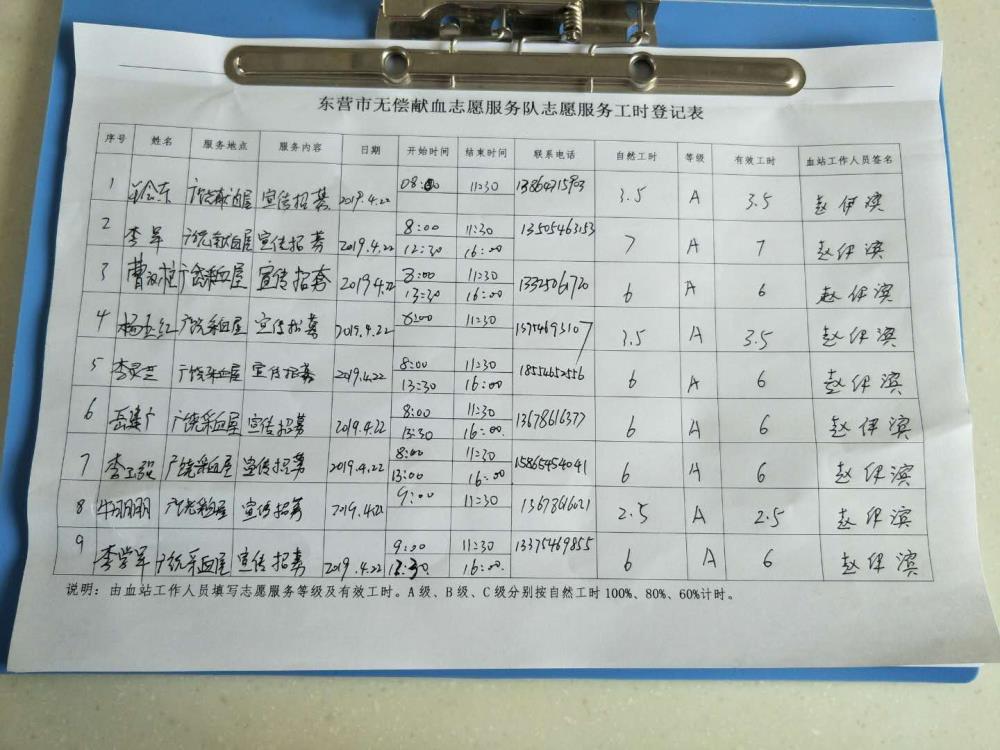 东营市无偿献血志愿服务队志愿服务工时登记表
序号 姓名 服务地点 服务内容 日期 开始时间 结束时间 联系电话 自然工时 等级 有效工时 血站工作人员签名
1 宣传招募 2019.4.22 08:00 11:30 3.5 A 3.5 赵伊滨
2 李军 宣传招募 2019.4.22 8:00 11:30 13505463153 7 A 7 赵伊滨
12:30 16:00
3 广饶采血屋 宣传招募 2019.4.22 8:00 11:30 13325061720 6 A 6 赵伊滨
13:30 16:00
4 杨玉红 广饶采血屋 宣传招募 2019.4.22 8:00 11:30 13754693107 3.5 A 3.5 赵伊滨
5 广饶采血屋 宣传招募 2019.4.22 8:00 11:30 18554652556 6 A 6 赵伊滨
13:30 16:00
6 广饶采血屋 宣传招募 2019.4.22 8:00 11:30 13678616377 6 A 6 赵伊滨
13:30 16:00
7 广饶采血屋 宣传招募 2019.4.22 8:00 11:30 15865454041 6 A 6 赵伊滨
13:00 16:00
8 牛丽丽 广饶采血屋 宣传招募 2019.4.22 9:00 11:30 13678616021 2.5 A 2.5 赵伊滨
9 李学军 广饶采血屋 宣传招募 2019.4.22 9:00 11:30 13375469855 6 A 6 赵伊滨
12:30 16:00
说明：由血站工作人员填写志愿服务等级及有效工时。A级、B级、C级分别按自然工时100%、80%、60%计时。